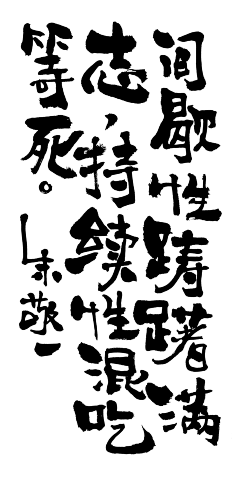 间歇性踌躇满
志，持续性混吃
等死。—朱敬一